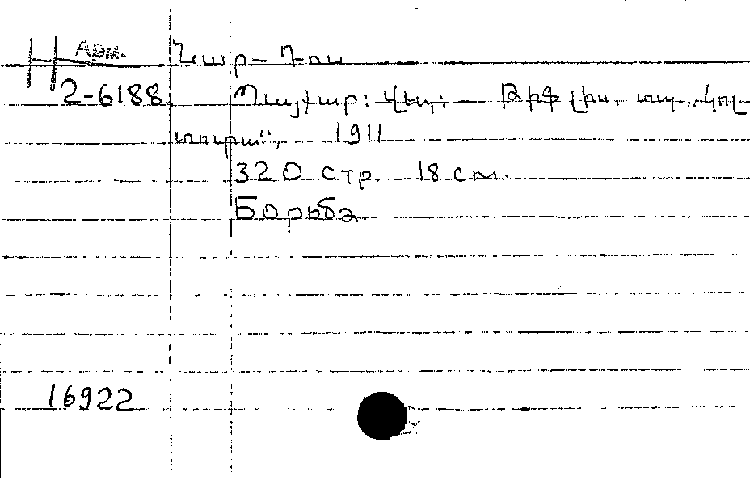 H Арм. Նար-Դոս
2-6188 Պայքար: Վեպ: — Թիֆլիս, տպ. „Կուլ-
տուրա“, 1911
320 стр. 18 см.
Борьба
16922